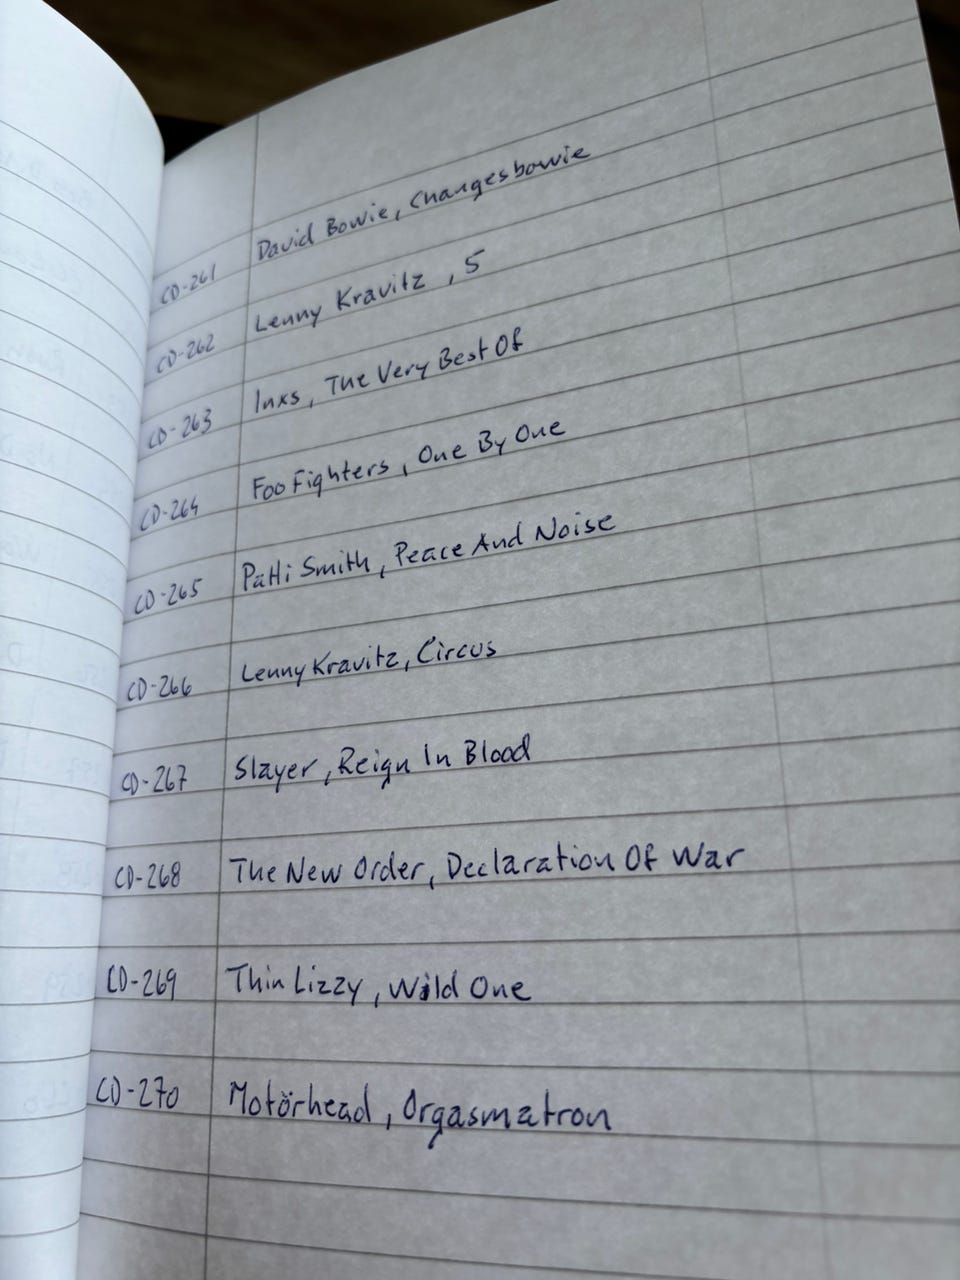 CD-261 David Bowie, Changesbowie
CD-262 Lenny Kravitz, 5
CD-263 Inxs, The Very Best Of
CD-264 Foo Fighters, One By One
CD-265 Patti Smith, Peace And Noise
CD-266 Lenny Kravitz, Circus
CD-267 Slayer, Reign In Blood
CD-268 The New Order, Declaration Of War
CD-269 Thin Lizzy, Wild One
CD-270 Motörhead, Orgasmatron